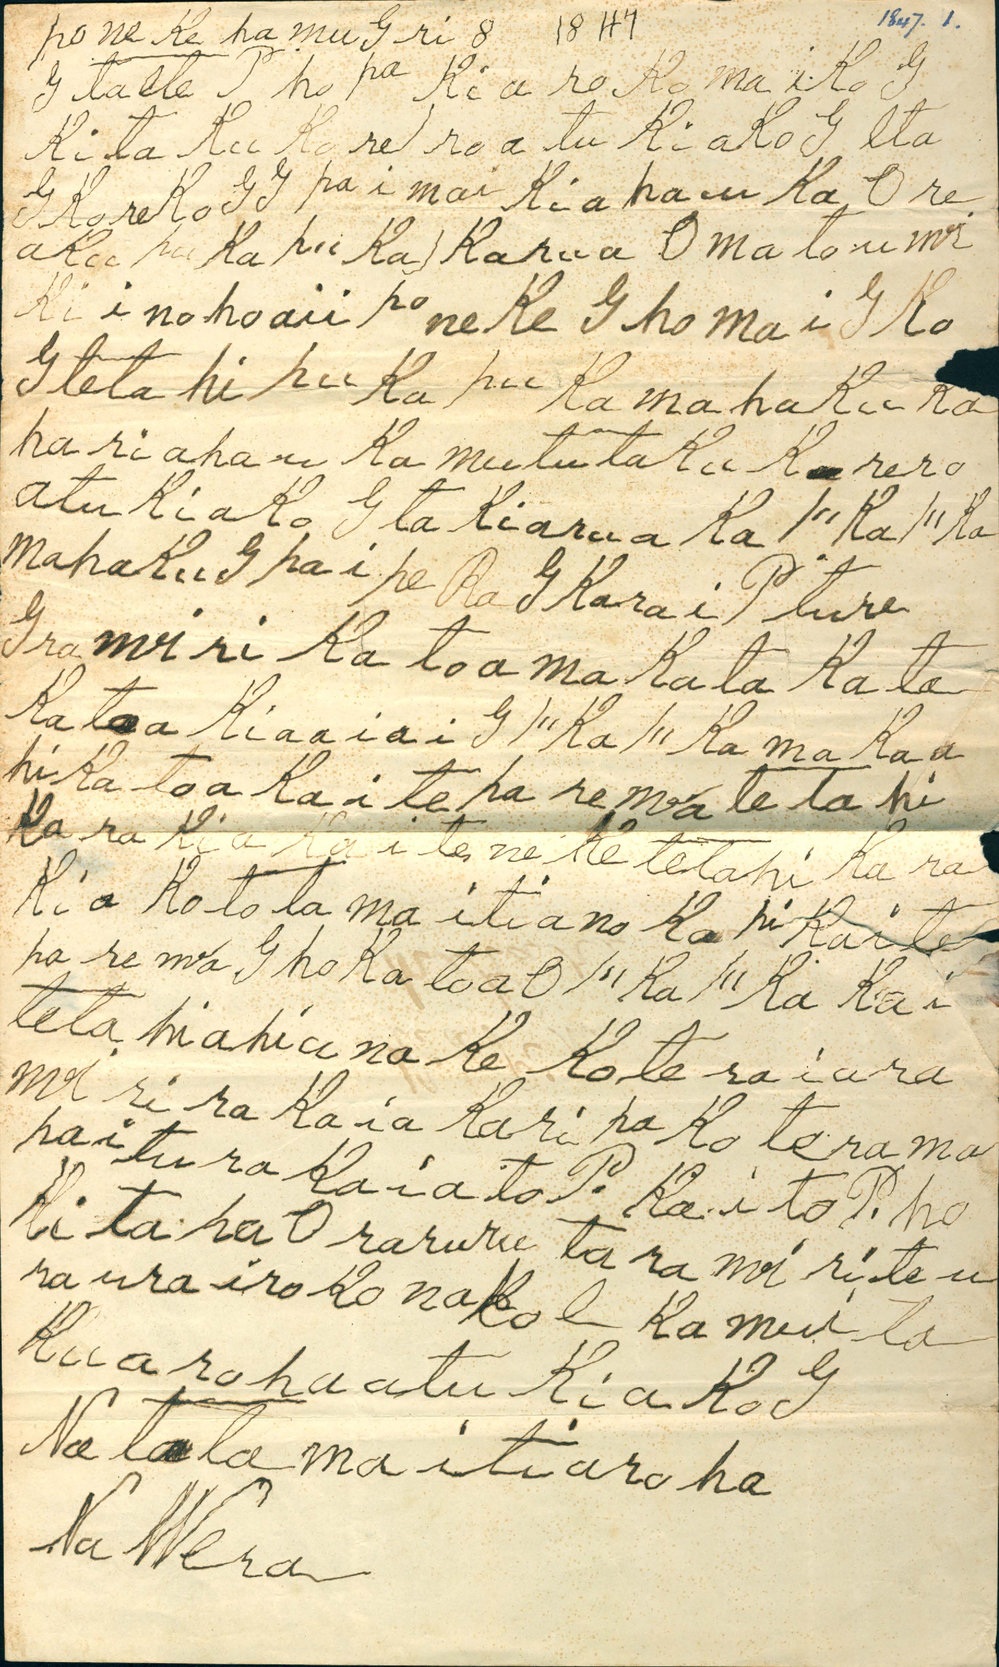 poneke hamuGri 8 1847
1847. 1.
G ta ete P ho pa Ki a ro Ko ma i Ko G
Ki ta Ku Ko re) ro a tu Ki a Ko G Eta
G Ko re Ko G G pa i mai Ki a ha u Ka O re
a Ku pu Ka pu Ka) Ka ru a O ma to u wi
Ki i no ho aii po ne Ke G ho ma i G Ko
G te ta hi pu Ka pu Ka ma ha Ku Ka
ha ri a ha u Ka mu tu ta Ku Ko re ro
atu Ki a Ko G ta Ki a ru a Ka pu Ka pu Ka
ma ha Ku G pa i pe Ra G Ka ra i P ture
G ra wi ri Ka to a ma Ka ta Ka ta
Ka to a Ki a a i a i G pu Ka pu Ka ma Ka a
hi Ka to a Ka i te pa re wa te ta hi
Ka ra Ki a Ka i te ne Ke te ta hi Ka ra
Ki a Ko to ta ma i ti a no Ka hi Ka i te
pa re wa G ho Ka to a O pu Ka pu Ka Ka i
te ta hi a hi u na Ke Ko te ra i u ra
wi ri ra Ka i a Ka ri pa Ko te ra ma
pa i tu ra Ka i a to P. Ka i to P. ho
Ki ta ha O ra ru ru ta ra wi ri te u
ra u ra i ro Ko na Ko e Ka mu i ta
Ku a ro ha a tu Ki a Ko G
Na ta ta ma i ti a ro ha
Na WEra